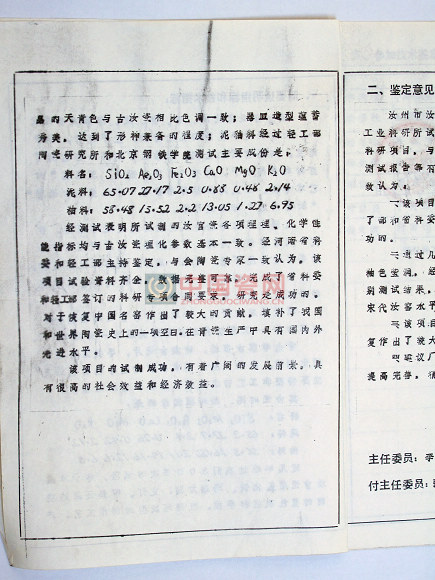 品的天青色与古汝瓷相比色调一致；器皿造型蕴蓄
为美，达到了形神兼备的程度；泥釉料经过轻工部
陶瓷研究所和北京钢铁学院测试主要成份是：
料名： SiO₂ Al₂O₃ Fe₂O₃ CaO MgO K₂O
泥料： 65.07 27.17 2.5 0.85 0.48 2.14
釉料： 58.48 15.52 2.2 13.05 1.27 6.95
经测试表明所试制的汝官瓷各项理理、化学性
能指标均与古汝瓷理化参数基本一致。经河南省科
委和轻工部主持鉴定，与会陶瓷专家一致认为，该
项目试验资料齐全，数据完整可靠，完成了省科委
和轻工部签订的科研专项合同要求，研究是成功的。
对于恢复中国名窑作出了较大的贡献，填补了我国
和世界陶瓷史上的一项空白。在青瓷生产中具有国内外
先进水平。
该项目的试制成功，有着广阔的发展前景，具
有很高的社会效益和经济效益。
二、鉴定意见
汝州市汝
工业科研所试
科研项目，与
测试报告等有
致认为：
一该项目
了部和省科委
功的。
二通过几
釉色莹润，经
宋代汝窑水平
三该项目
复作出了较大
四建议厂
提高完善，
主任委员：李
付主任委
中国瓷网
WWW.CHINACHINAWANG.COM